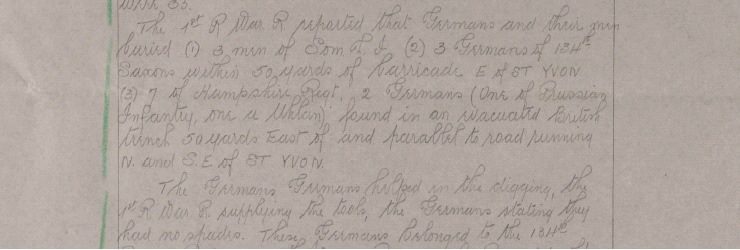 The 1st R War. R reported that Germans and their men
buried (1) 3 men of Som L I, (2) 3 Germans of 134th
Saxons within 50 yards of barricade E of ST YVON
(3) 7 of Hampshire Regt. 2 Germans (One of Prussian
Infantry, one a Uhlan) found in an evacuated British
trench 50 yards East of and parallel to road running
N. and S.E of ST YVON.
The Germans Germans helped in the digging, the
1st R War. R. supplying the tools, the Germans stating they
had no spades. These Germans belonged to the 134th